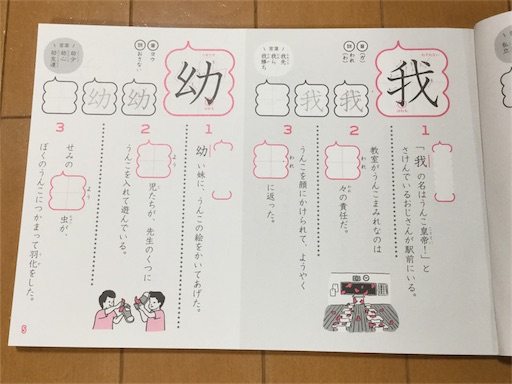 我
音（ガ）
訓 われ（わ）
言葉
我先
我ら
我
我
1
「我の名はうんこ皇帝！」と
さけんでいるおじさんが駅前にいる。
2
われ
々の責任だ。
教室がうんこまみれなのは
3
うんこを顔にかけられて、ようやく
われ
に返った。
幼
音 ヨウ
訓 おさない
言葉
幼少
幼心
幼友達
幼
幼
1
幼い妹に、うんこの絵をかいてあげた。
2
よう
児たちが、先生のくつに
うんこを入れて遊んでいる。
3
せみの
よう
虫が、
ぼくのうんこにつかまって羽化をした。
5